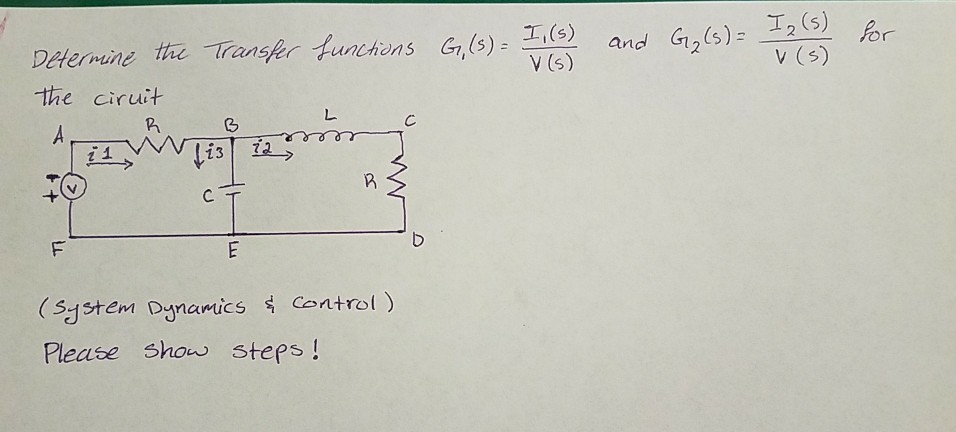 Determine the Transfer functions G₁(s) = I₁(s)/V(s) and G₂(s) = I₂(s)/V(s) for
the ciruit
A R B L C
i1 i3 i2
V C R
F E D
(System Dynamics & Control)
Please show steps!